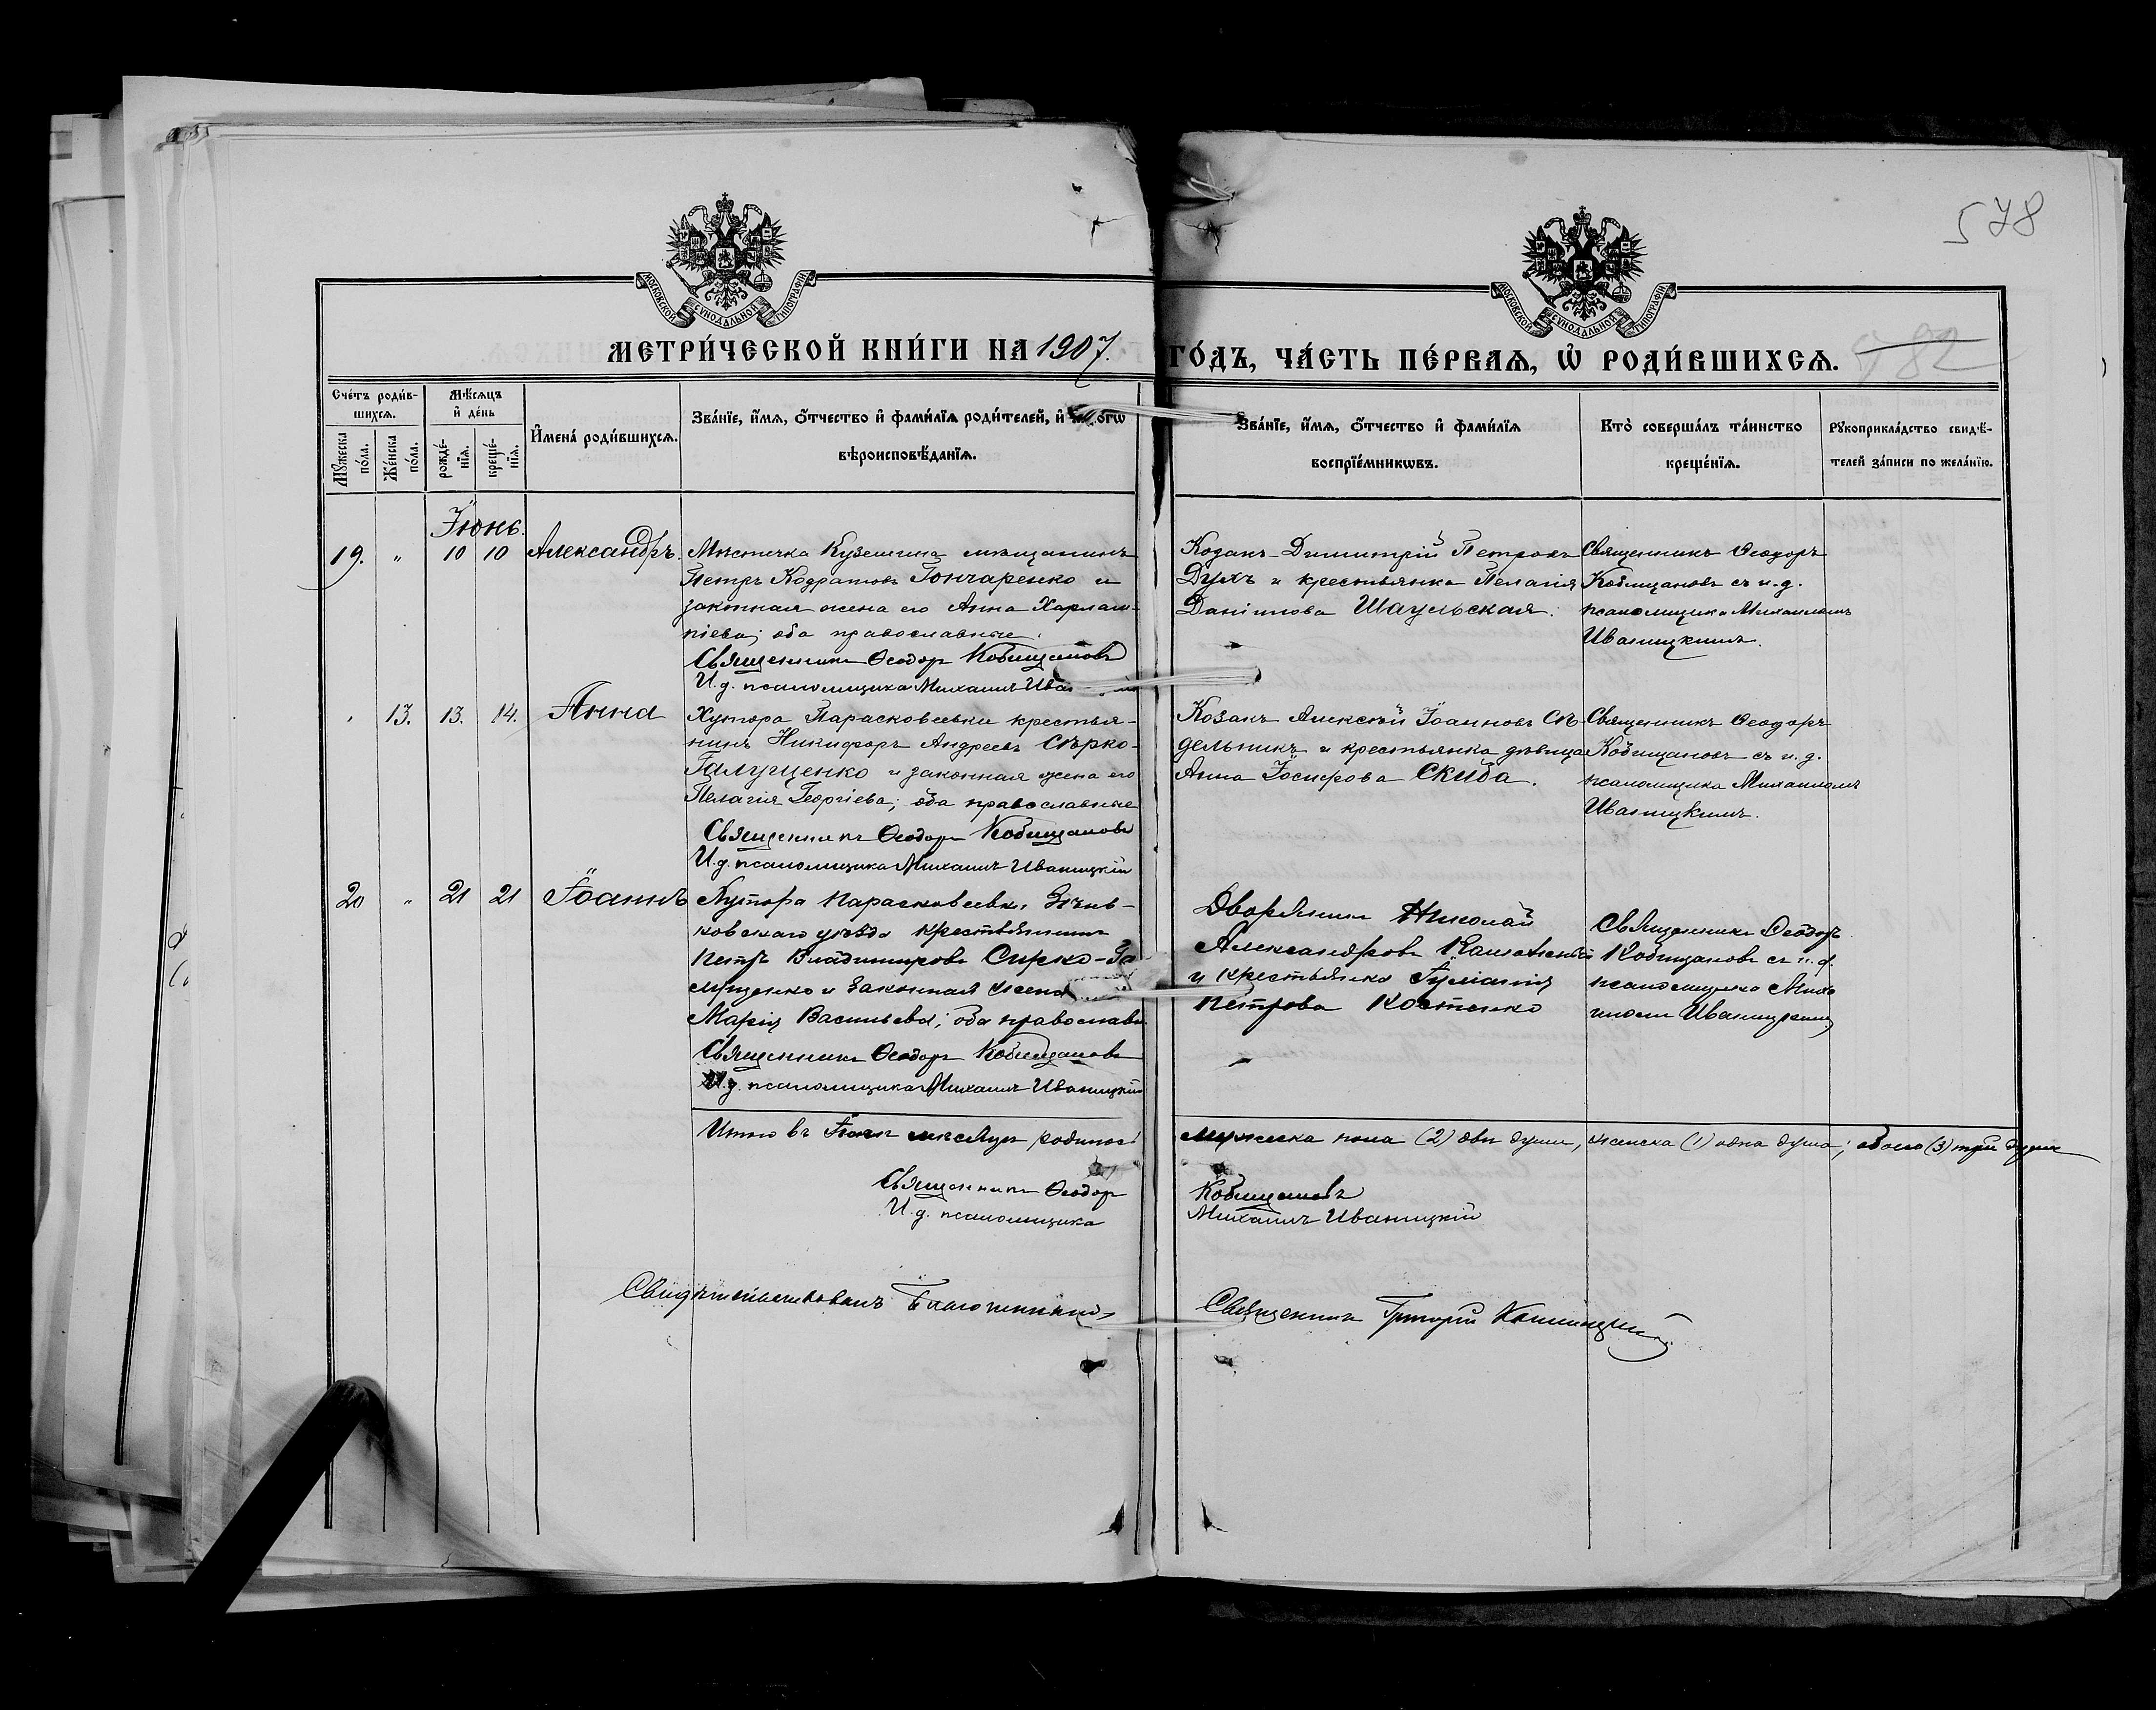 578
МОСКОВСКОЙ СѴНОДАЛЬНОЙ ТИПОГРАФІИ
МОСКОВСКОЙ СѴНОДАЛЬНОЙ ТИПОГРАФІИ
МЕТРИ́ЧЕСКОЙ КНИ́ГИ НА 1907. ГО́ДЪ, ЧА́СТЬ ПЕ́РВАѦ, Ѡ҆ РОДИ́ВШИХСѦ.
582
Сче́тъ роди́в-
шихсѧ.
Мѣ́сѧцъ
и҆ де́нь
Мꙋжеска
по́ла.
Же́нска
по́ла.
рожде́-
нїѧ.
креще́-
нїѧ.
И҆мена̀ роди́вшихсѧ.
Зва́нїе, и҆́мѧ, ѻ҆́тчество и҆ фами́лїѧ роди́телей, и҆
вѣроисповѣ́данїѧ.
Зва́нїе, и҆́мѧ, ѻ҆́тчество и҆ фами́лїѧ
воспрїе́мникѡвъ.
Кто̀ соверша́лъ та́инство
креще́нїѧ.
Рꙋкоприкла́дство свидѣ́-
телей за́писи по жела́нїю.
Іюнь.
19. „ 10 10 Александръ.
Мѣстечка Куземина мѣщанинъ
Петръ Кодратовъ Гончаренко и
законная жена его Анна Харлам-
піева; оба православные.
Священникъ Ѳеодоръ Кобищановъ
И.д. псаломщика Михаилъ
Козакъ Димитрій Петровъ
Духъ и крестьянка Пелагія
Даніилова Шаульская.
Священникъ Ѳеодоръ
Кобищановъ съ и.д.
псаломщика Михаиломъ
Иваницкимъ.
„ 13. 13. 14. Анна
Хутора Парасковеевки крестья-
нинъ Никифоръ Андреевъ Сѣрко-
Галущенко и законная жена его
Пелагія Георгіева; оба православные
Священникъ Ѳеодоръ Кобищановъ
И.д. псаломщика Михаилъ Иваницкій
Козакъ Алексѣй Іоанновъ Сѣ-
дельникъ и крестьянка дѣвица
Анна Іосифова Скиба.
Священникъ Ѳеодоръ
Кобищановъ съ и.д.
псаломщика Михаиломъ
Иваницкимъ.
20 „ 21 21 Іоаннъ
Хутора Парасковеевки Зѣнь-
ковскаго уѣзда крестьянинъ
Петръ Владимировъ Сирко-Га
лущенко и законная жена
Марія Васильева; оба православн.
Священникъ Ѳеодоръ Кобищановъ
И.д. псаломщика Михаилъ Иваницкій
Дворянинъ Николай
Александровъ
и крестьянка
Петрова Костенко
Священникъ Ѳеодоръ
Кобищановъ съ и.д.
псаломщика Миха
иломъ Иваницкимъ
Итого въ Іюнѣ мѣсяцѣ родилось мужеска пола (2) двѣ души, женска (1) одна душа; обоего (3) три души
Священникъ Ѳеодоръ Кобищановъ
И.д. псаломщика Михаилъ Иваницкій
Свидѣтельствовалъ Благочинный, Священникъ Григорій